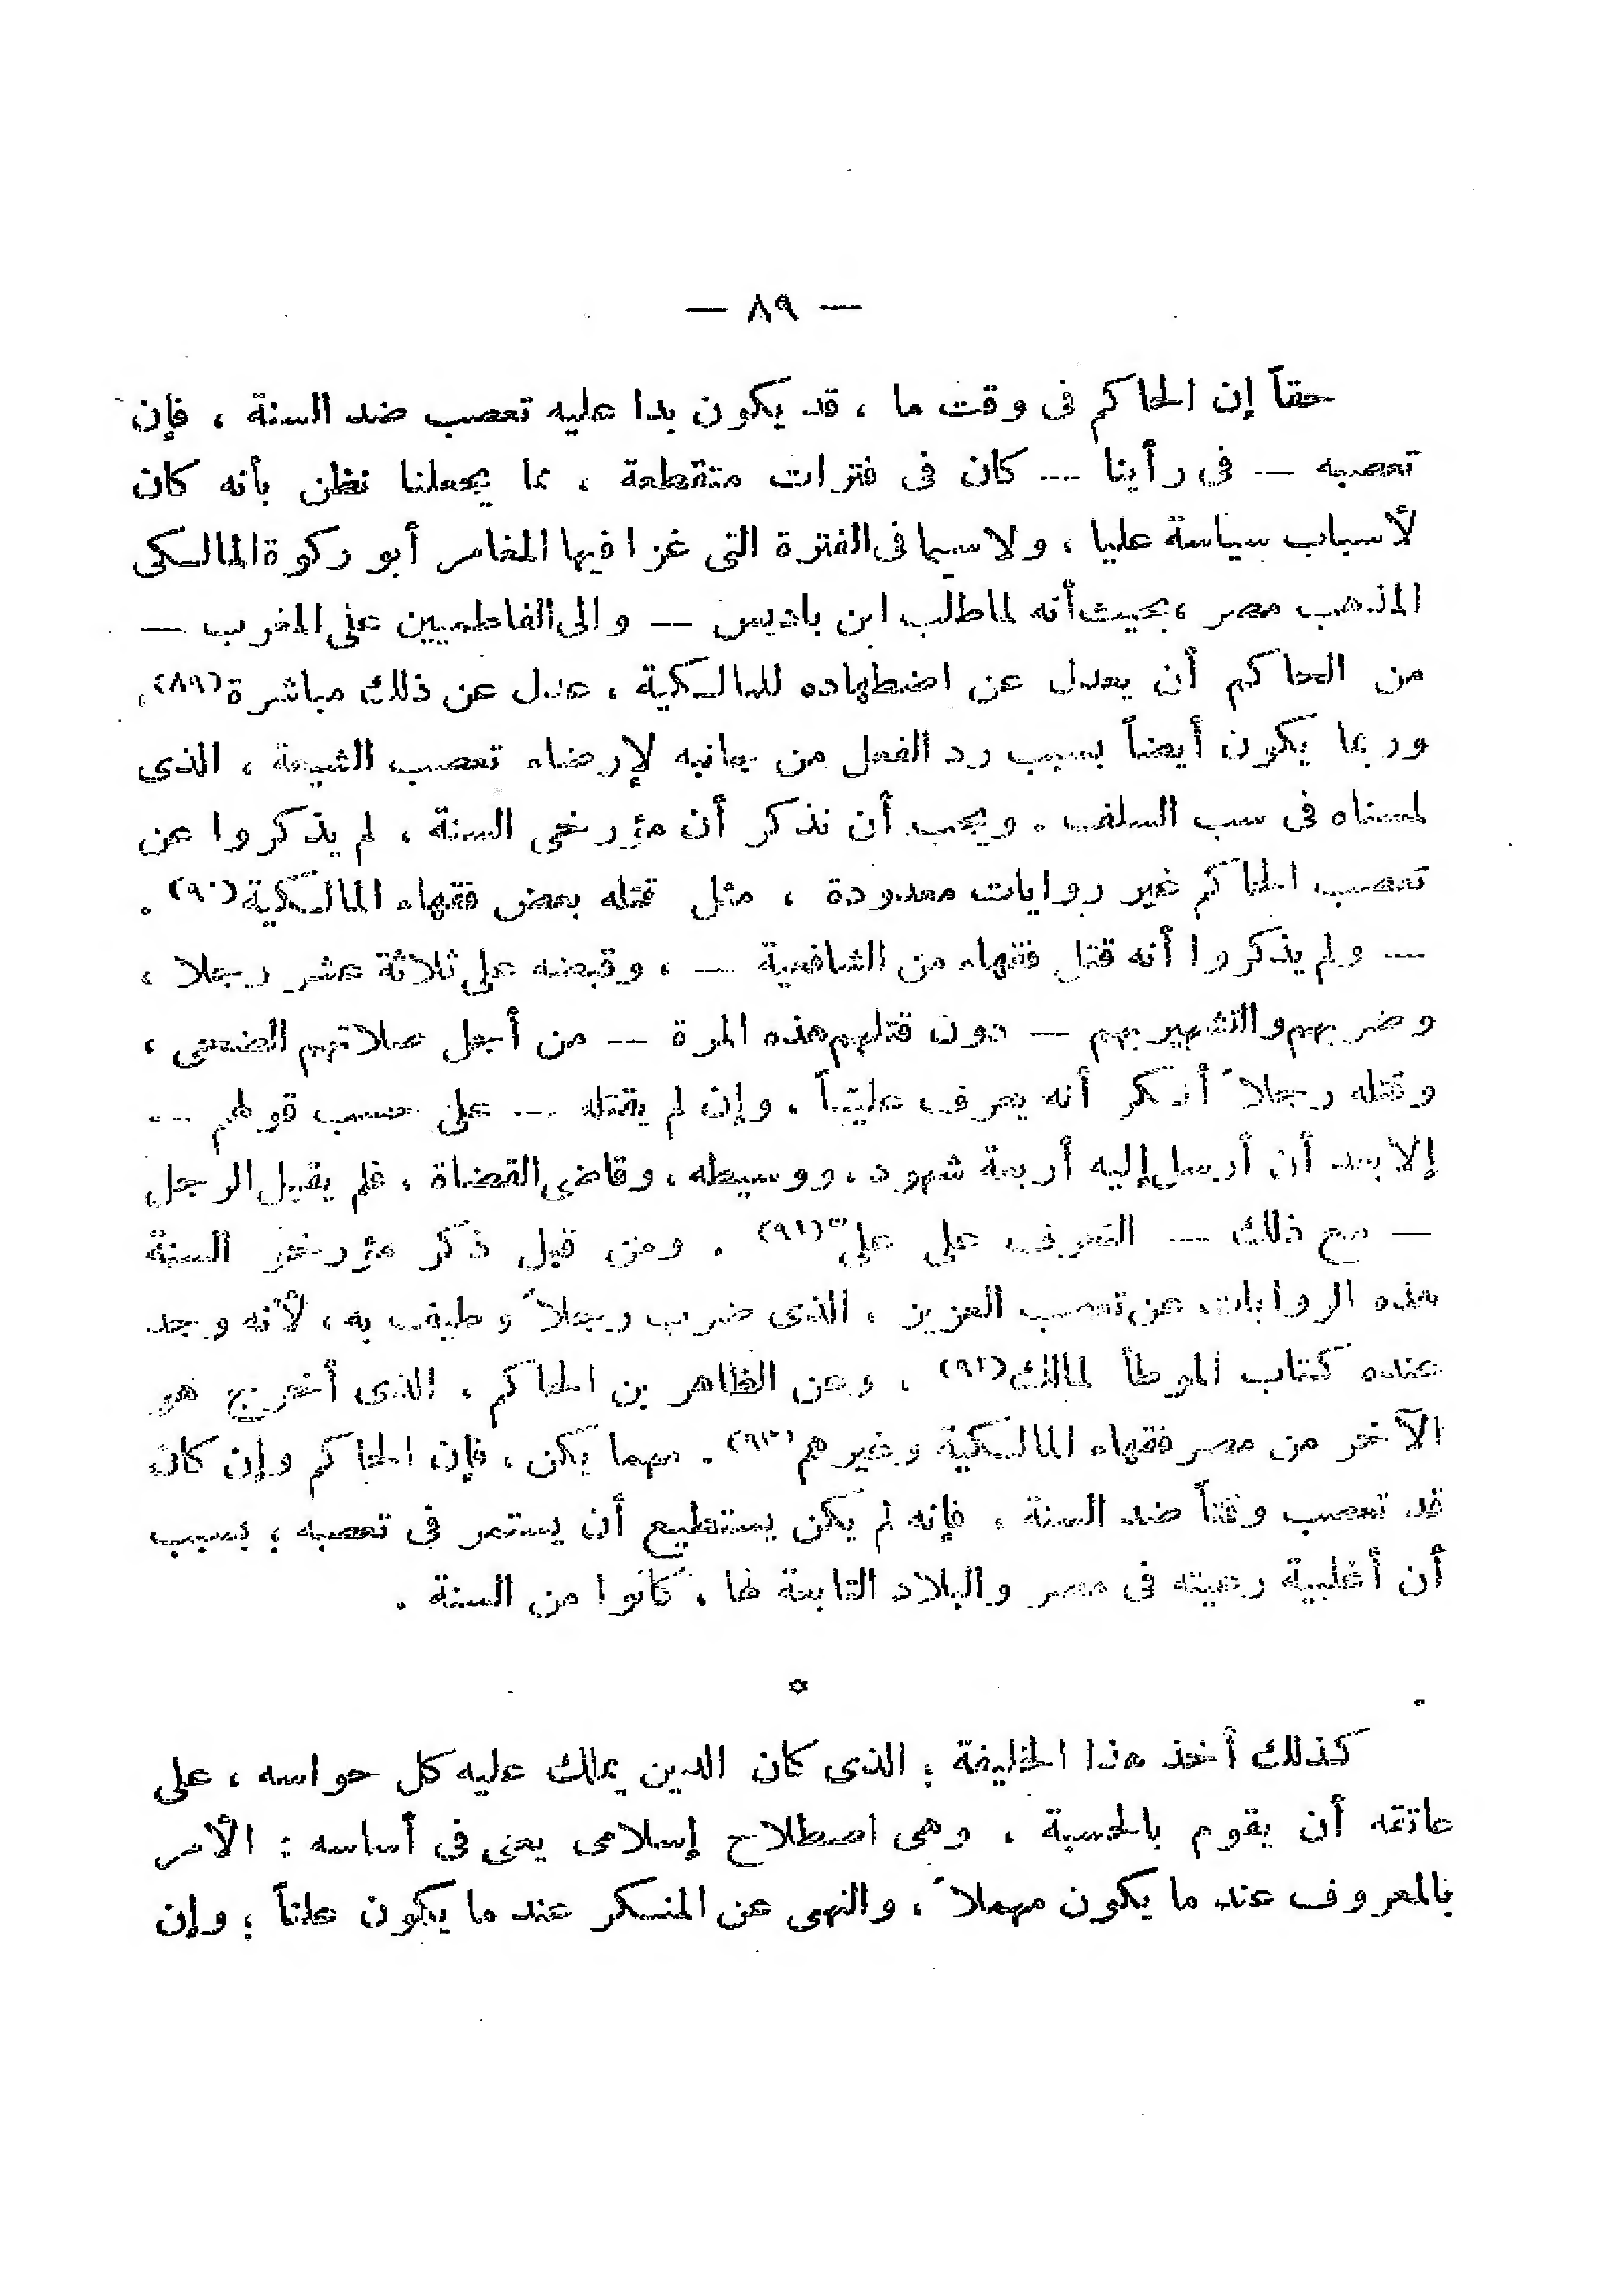 — ٨٩ —
حقاً إن الحاكم فى وقت ما ، قد يكون بدا عليه تعصب ضد السنة ، فإن
تعصبه — فى رأينا — كان فى فترات متقطعة ، مما يجعلنا نظن بأنه كان
لأسباب سياسة عليا ، ولاسيما فى الفترة التى غزا فيها المغامر أبو ركوة المالكى
المذهب مصر ، بحيث أنه لما طلب ابن باديس — والى الفاطميين على المغرب —
من الحاكم أن يعدل عن اضطهاده للمالكية ، عدل عن ذلك مباشرة (٨٩) .
وربما يكون أيضاً بسبب رد الفعل من جانبه لإرضاء تعصب الشيعة ، الذى
لمسناه فى سب السلف . ويجب أن نذكر أن مؤرخى السنة ، لم يذكروا عن
تعصب الحاكم غير روايات معدودة ، مثل قتله بعض فقهاء المالكية (٩٠) .
— ولم يذكروا أنه قتل فقهاء من الشافعية — ، وقبضه على ثلاثة عشر رجلا ،
وضربهم والتشهير بهم — دون قتلهم هذه المرة — من أجل صلاتهم الضحى ،
وقتله رجلاً أنكر أنه يعرف عليّاً ، وإن لم يقتله — على حسب قولهم —
إلا بعد أن أرسل إليه أربعة شهود ، ووسيطه ، وقاضى القضاة ، فلم يقبل الرجل
— مع ذلك — التعرف على علىّ (٩١) . ومن قبل ذكر مؤرخو السنة
هذه الروايات عن تعصب العزيز ، الذى ضرب رجلاً وطيف به ، لأنه وجد
عنده كتاب الموطأ لمالك (٩٢) ، وعن الظاهر بن الحاكم ، الذى أخرج هو
الآخر من مصر فقهاء المالكية وغيرهم (٩٣) . مهما يكن ، فإن الحاكم وإن كان
قد تعصب وقتاً ضد السنة ، فإنه لم يكن يستطيع أن يستمر فى تعصبه ؛ بسبب
أن أغلبية رعيته فى مصر والبلاد التابعة لها ، كانوا من السنة .
☆
كذلك أخذ هذا الخليفة ؛ الذى كان الدين يملك عليه كل حواسه ، على
عاتقه أن يقوم بالحسبة ، وهى اصطلاح إسلامى يعنى فى أساسه : الأمر
بالمعروف عند ما يكون مهملاً ، والنهى عن المنكر عند ما يكون علناً ؛ وإن